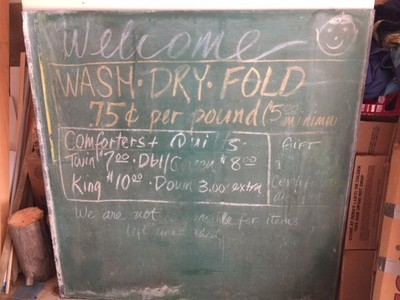 Welcome
WASH·DRY·FOLD
75¢ per pound (5.00 minimum
Comforters + Quilts
Twin $7.00 · Dbl/Queen $8.00
King $10.00 · Down 3.00 extra
GIFT
We are not responsible for items
left